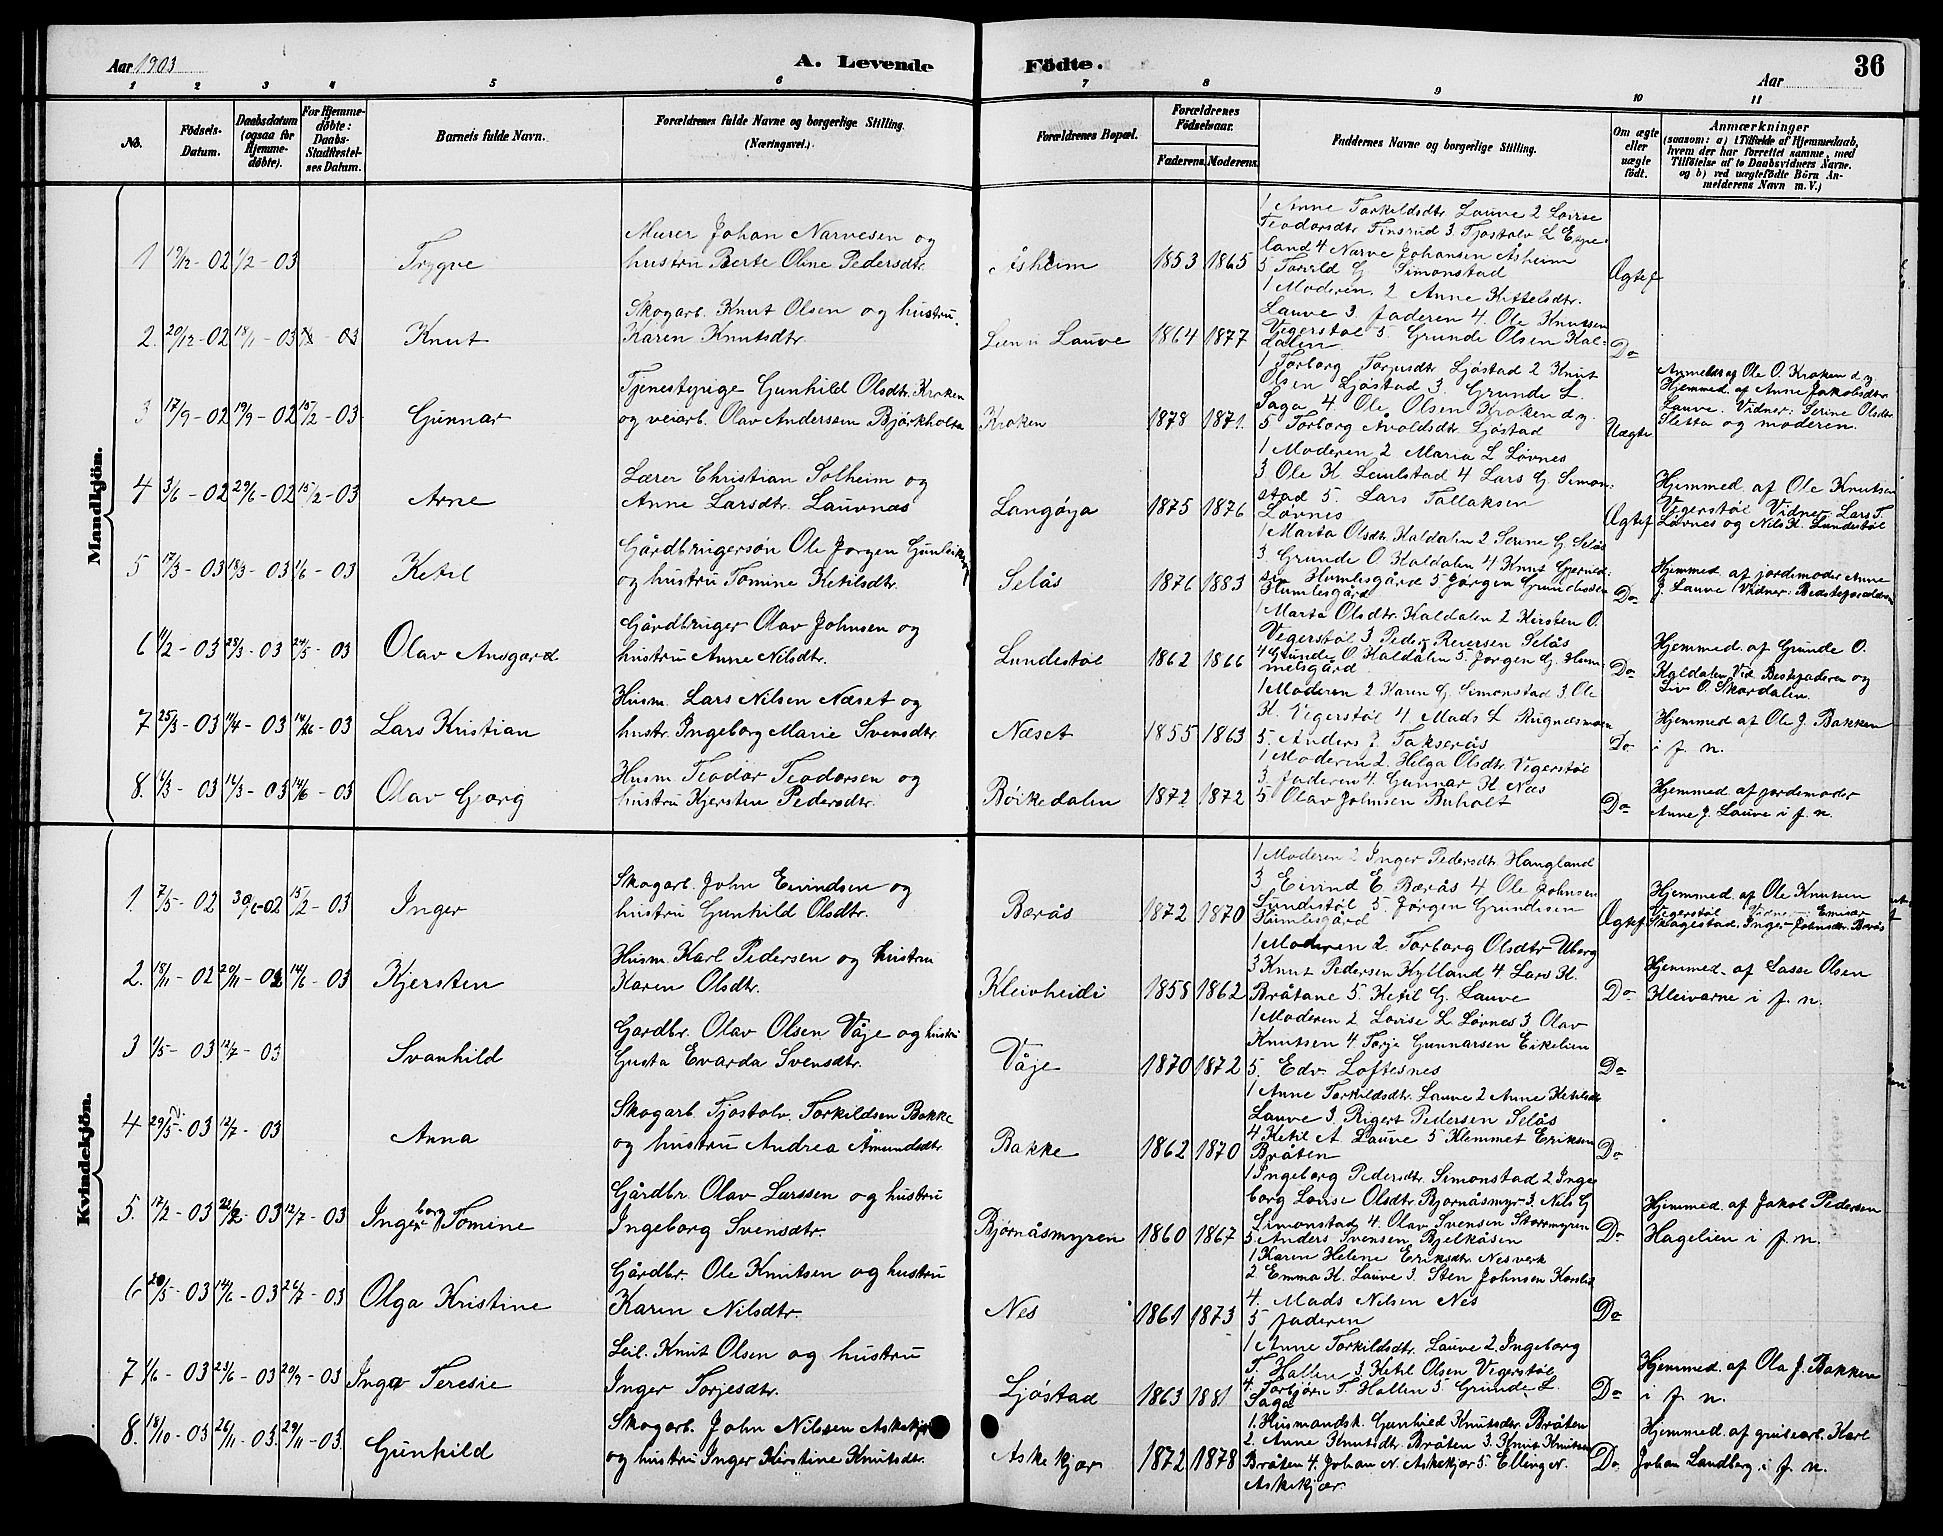 Aar 1903
A. Levende
Fødte.
Aar
36
1 2 3 4 5 6 7 8 9 10 11
No.
Fødsels-
Datum.
Daabsdatum
(ogsaa for
Hjemme-
døbte).
For Hjemme-
døbte:
Daabs-
Stadfæstel-
ses Datum.
Barnets fulde Navn.
Forældrenes fulde Navne og borgerlige Stilling.
(Næringsvei.)
Forældrenes Bopæl.
Forældrenes
Fødselsaar.
Faderens. Moderens.
Faddernes Navne og borgerlige Stilling.
Om ægte
eller
uægte
født.
Anmærkninger
(saasom: a) i Tilfælde af Hjemmedaab,
hvem der har forrettet samme, med
Tilføielse af to Daabsvidners Navne.
og b) ved uægtefødte Børn An-
melderens Navn m. V.)
Mandkjön.
1 19/12-02 1/2-03
Trygve
Murer Johan Narvesen og
hustru Berte Oline Pedersdtr.
Åsheim
1853 1865
1 Anne Torkildsdtr Lauve 2 Lovise
Teodorsdtr Finsrud 3. Tjostolv L Espe-
land 4 Narve Johansen Åsheim
5 Torvild G Simonstad
Ægtef
2. 20/12-02 18/1-03
Knut
Skogarb. Knut Olsen og hustru
Karen Knutsdtr.
Lien i Lauve
1864 1877
1 Moderen. 2 Anne Kittelsdtr.
Lauve 3. Faderen 4. Ole Knutsen
Vegerstøl 5. Grunde Olsen Hal-
dalen
Do
3 17/9-02 19/9-02 15/2-03
Gunnar
Tjenestepige Gunhild Olsdtr. Kroken
og veiarb. Olav Anderssen Bjørkholta
Kroken
1878 1871.
1 Torborg Torjusdtr Ljøstad 2 Knut
Olsen Ljøstad 3. Grunde L.
Saga 4. Ole Olsen Kroken d.y.
5 Torborg Avoldsdtr Ljøstad
Uægte
Anmeldt af Ole O. Kroken d.y
Hjemmed. af Anne Jakobsdtr.
Lauve. Vidner: Serine Olsdtr.
Sletta og moderen.
4 3/6-02 29/6-02 15/2-03
Arne
Lærer Christian Solheim og
Anne Larsdtr. Lauvnes
Langøya
1875 1876
1 Moderen 2 Maria L Løvnes
3 Ole K. Lundstad 4 Lars G Simon-
stad 5. Lars Tallaksen
Løvnes
Ægtef
Hjemmed af Ole Knutsen
Vegerstøl Vidner: Lars T.
Løvnes og Nils K. Lundestøl
5 17/3-03 18/3-03 1/6-03
Ketil
Gårdbrugersøn Ole Jørgen Gunleiksen
og hustru Tomine Ketilsdtr.
Selås
1876 1883
1 Marta Olsdtr Haldalen 2 Serine G. Selås
3 Grunde O. Haldalen 4 Knut Gjerued-
sen Humlesgård 5 Jørgen Grundesen
Humlesgård
Do
Hjemmed. af jordemoder Anne
J. Lauve. Vidner: Bedsteforældrene
6 11/2-03 28/3-03 24/5-03
Olav Ansgard
Gårdbruger Olav Johnsen og
hustru Anne Nilsdtr.
Lundestøl
1862 1866
1 Marta Olsdtr. Haldalen 2 Kirsten O.
Vegerstøl 3 Peder Reiersen Selås
4 Grunde O Haldalen 5. Jørgen G. Hum-
melsgård
Do
Hjemmed af Grunde O.
Haldalen. Vid. Bestefaderen og
Liv O. Skardalen.
7 25/3-03 11/4-03 14/6-03
Lars Kristian
Husm. Lars Nilsen Næset og
hustr. Ingeborg Marie Svensdtr.
Næset
1855 1863
1 Moderen 2 Karen G. Simonstad 3 Ole
K. Vegerstøl 4 Mads L. Rugnæsmoen
5. Anders J. Takserås
Do
Hjemmed af Ole J. Bakken
i f. n.
8. 11/3-03 14/3-03 14/6-03
Olav Georg
Husm. Teodor Teodorsen og
hustru Kjersten Pedersdtr.
Bøikedalen
1872 1872
1 Moderen 2. Helga Olsdtr. Vegerstøl
3. Faderen 4. Gunnar K. Næs
5. Olav Johnsen Buholt
Do
Hjemmed af jordemoder
Anne J. Lauve i f. n.
Kvindekjön.
1. 7/5-02 30/6-02 15/2-03
Inger
Skogarb. John Eivindsen og
hustru Gunhild Olsdtr.
Berås
1872 1870
1 Moderen 2 Inger Pedersdtr Haugland
3 Eivind E. Berås 4. Ole Johnsen
Lundestøl 5. Jørgen Grundesen
Humlesgård
Ægtef
Hjemmed. af Ole Knutsen
Vegerstøl. Vidner: Emissær
Skagestad, Inger Johnsdtr. Berås
2. 18/11-02 20/11-02 14/6-03
Kjersten
Husm. Karl Pedersen og hustru
Karen Olsdtr.
Kleivheidi
1858 1862
1 Moderen 2. Torborg Olsdtr Uberg
3 Knut Pedersen Hylland 4. Lars K.
Bråtane 5. Ketil G. Lauve
Do
Hjemmed. af Lasse Olsen
Kleivarne i f. n.
3 1/5-03 12/7-03
Svanhild
Gardbr. Olav Olsen Våje og hustru
Gusta Evarda Svensdtr.
Våje
1870 1872
1 Moderen 2 Lovise L. Løvnes 3. Olav
Knutsen 4. Torje Gunnarsen Eikelien
5. Edv. Loftesnes
Do
4 29/5-03 12/7-03
Anna
Skogarb. Tjostolv. Torkildsen Bakke
og hustru Andrea Åmundsdtr
Bakke
1862 1870
1 Anne Torkildsdtr. Lauve 2 Anne Ketilsdtr
Lauve 3. Rigert Pedersen Selås
4 Ketil A Lauve 5 Klemmet Eriksen
Bråten
Do
5. 17/2-03 22/2-03 12/7-03
Ingeborg Tomine
Gårdbr. Olav Larssen og hustru
Ingeborg Svensdtr.
Bjørnåsmyren
1860 1867
1 Ingeborg Pedersdtr. Simonstad 2 Inge-
borg Louise Olsdtr. Bjørnåsmyr 3. Nils G
Simonstad 4. Olav Svensen Storemyren
5 Anders Svensen Bjelkåsen
Do
Hjemmed. af Jakob Pedersen
Hagelien i f. n.
6 20/5-03 14/6-03 26/7-03
Olga Kristine
Gårdbr. Ole Knutsen og hustru
Karen Nilsdtr.
Nes
1861 1873
1 Karen Helene Eriksdtr. Nesverk
2. Emma K. Lauve 3. Sten Johnsen
4. Mads Nilsen Nes
5 Faderen
Do
7 1/6-03 23/6-03 20/9-03
Inga Teresie
Leil. Knut Olsen og hustru
Inger Torjesdtr.
Ljøstad
1863 1881
1 Anne Torkildsdtr. Lauve 2. Ingeborg
T. Hallen 3. Ketil Olsen Vegerstøl
4. Torbjørn T. Hallen 5. Grunde L.
Saga
Do
Hjemmed. af Ola J. Bakken
i f. n.
8. 18/10-03 26/11-03. 29/11-03.
Gunhild
Skogarb. John Nilssen Askekjær
og hustru Inger Kirstine Knutsdtr.
Askekjær
1872 1878
1. Husmandsk. Gunhild Knutsdtr. Bråten
2. Anne Knutsdtr. Bråten 3. Knut Knutsen
Bråten 4. Johan N. Askekjær 5. Elling N.
Askekjær
Do.
Hjemmed. af grubearb. Karl
Johan Landberg i f. n.